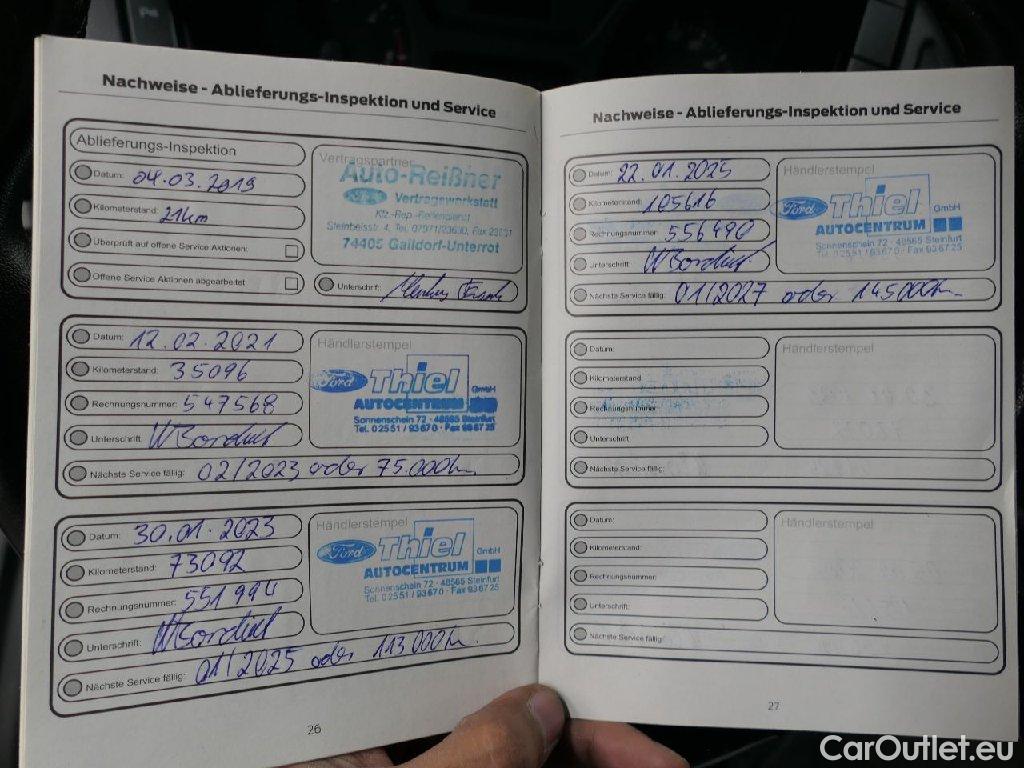 Nachweise - Ablieferungs-Inspektion und Service
Ablieferungs-Inspektion
Datum: 04.03.2019
Kilometerstand: 21km
Überprüft auf offene Service Aktionen:
Offene Service Aktionen abgearbeitet
Vertragspartner
Auto-Reißner
Ford Vertragswerkstatt
Kfz.-Rep.-Reifendienst
Steinbeisstr. 4, Tel. 07971/23630, Fax 23631
74405 Gaildorf-Unterrot
Unterschrift:
Datum: 12.02.2021
Kilometerstand: 35096
Rechnungsnummer: 547568
Unterschrift: WBorduk
Nächste Service fällig: 02/2023 oder 75.000km
Händlerstempel
Ford Thiel GmbH
AUTOCENTRUM
Sonnenschein 72 · 48565 Steinfurt
Tel. 02551/93670 · Fax 936725
Datum: 30.01.2023
Kilometerstand: 73092
Rechnungsnummer: 551994
Unterschrift: WBorduk
Nächste Service fällig: 01/2025 oder 113000km
Händlerstempel
Ford Thiel GmbH
AUTOCENTRUM
Sonnenschein 72 · 48565 Steinfurt
Tel. 02551/93670 · Fax 936725
26
Nachweise - Ablieferungs-Inspektion und Service
Datum: 22.01.2025
Kilometerstand: 105616
Rechnungsnummer: 556490
Unterschrift: WBorduk
Nächste Service fällig: 01/2027 oder 145000km
Händlerstempel
Ford Thiel GmbH
AUTOCENTRUM
Sonnenschein 72 · 48565 Steinfurt
Tel. 02551/93670 · Fax 936725
Datum:
Kilometerstand:
Rechnungsnummer:
Unterschrift:
Nächste Service fällig:
Händlerstempel
Datum:
Kilometerstand:
Rechnungsnummer:
Unterschrift:
Nächste Service fällig:
Händlerstempel
27
CarOutlet.eu